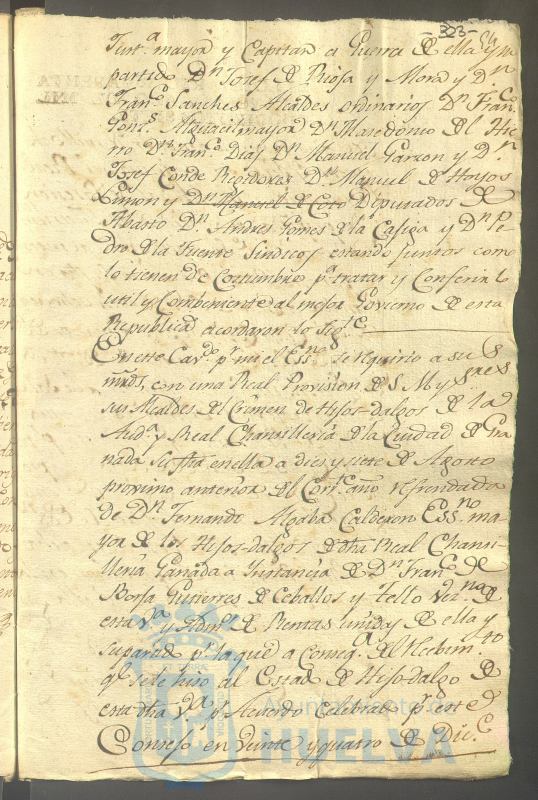 -323-
Just.ª mayor y Capitan a Guerra de ella y su
partido Dn Josef de Riosa y Mora y Dn
Franco Sanches Alcaldes ordinarios Dn Franco
Gons. Alguacil mayor Dn Masedonio del Hie
rro Dn Franco Dias Dn Manuel Garzon y Dn
Josef Conde Rexidores Dn Manuel de Hoyos
Limon y Dn Manuel de Coto Deputados de
Abasto Dn Andres Gomes de la Casiga y Dn Pe
dro de la Fuente Sindicos estando juntos como
lo tienen de Costumbre pa tratar y Conferir lo
util y Combeniente al mejor Govierno de esta
Republica acordaron lo sigte
En este Cavdo pr mi el Essno se requirio a sus
mrds, con una Real Provision de S. M. y Sres
sus Alcaldes del Crimen de Hijos-dalgos de la
Auda y Real Chansilleria de la Ciudad de Gra
nada su fha en ella a dies y siete de Agosto
proximo anterior del Corte año refrendada
de Dn Fernando Algaba Calderon Essno ma
yor de los Hijos-dalgos de dha Real Chansi
lleria Ganada a Instancia de Dn Franco de
Borja Gutierres de Ceballos y tello Vezno de
esta va y Admor de Rentas unidas de ella y
su partido pr la que a Conseqa del Recbimto
qe se le hiso al Estado de Hijo-dalgo de
esta dha va pr Acuerdo celebrado pr este
Consejo en Veinte y quatro de Dice
Ayuntamiento de
HUELVA